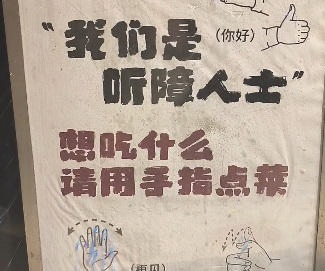 (你好)
“我们是
听障人士”
想吃什么
请用手指点菜
(再见)